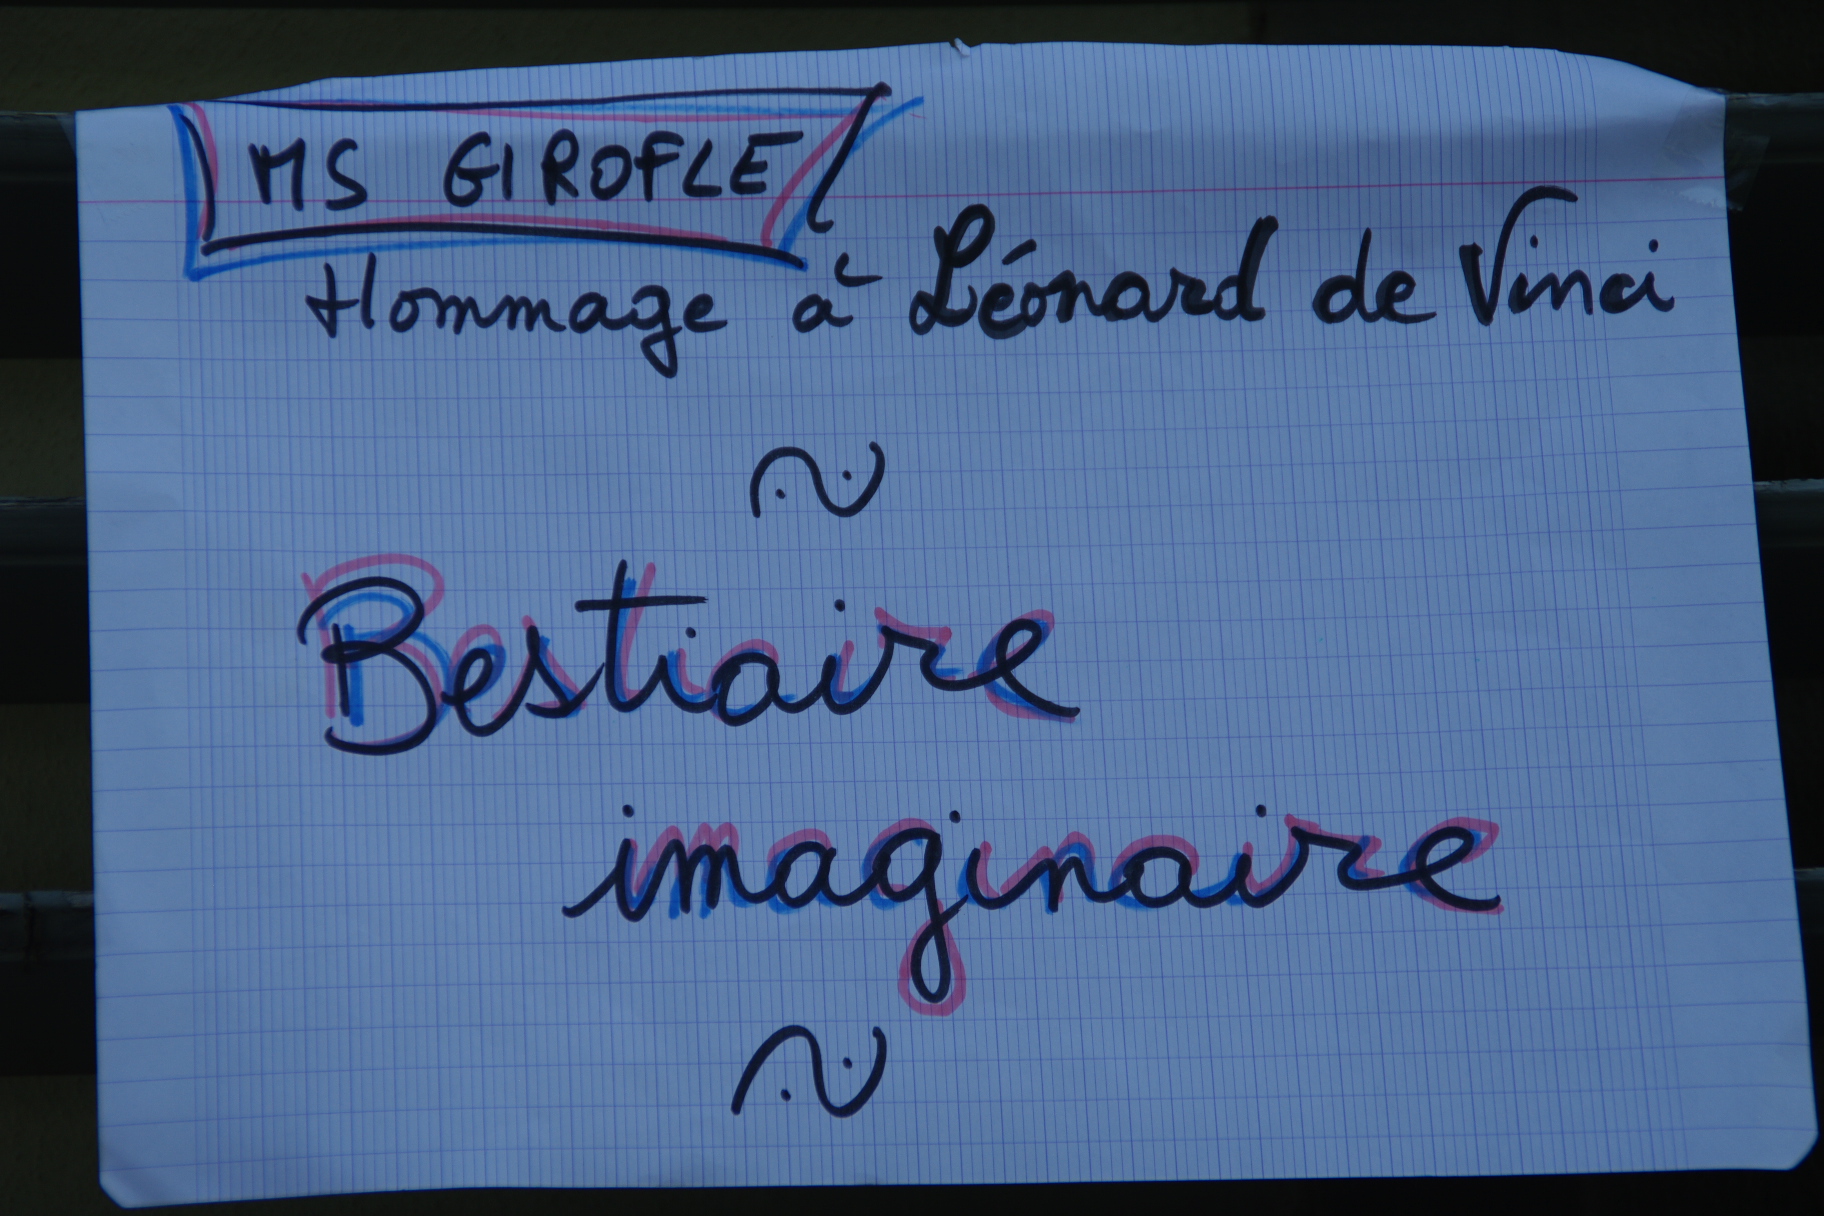 MS GIROFLE
Hommage à Léonard de Vinci
Bestiaire
imaginaire